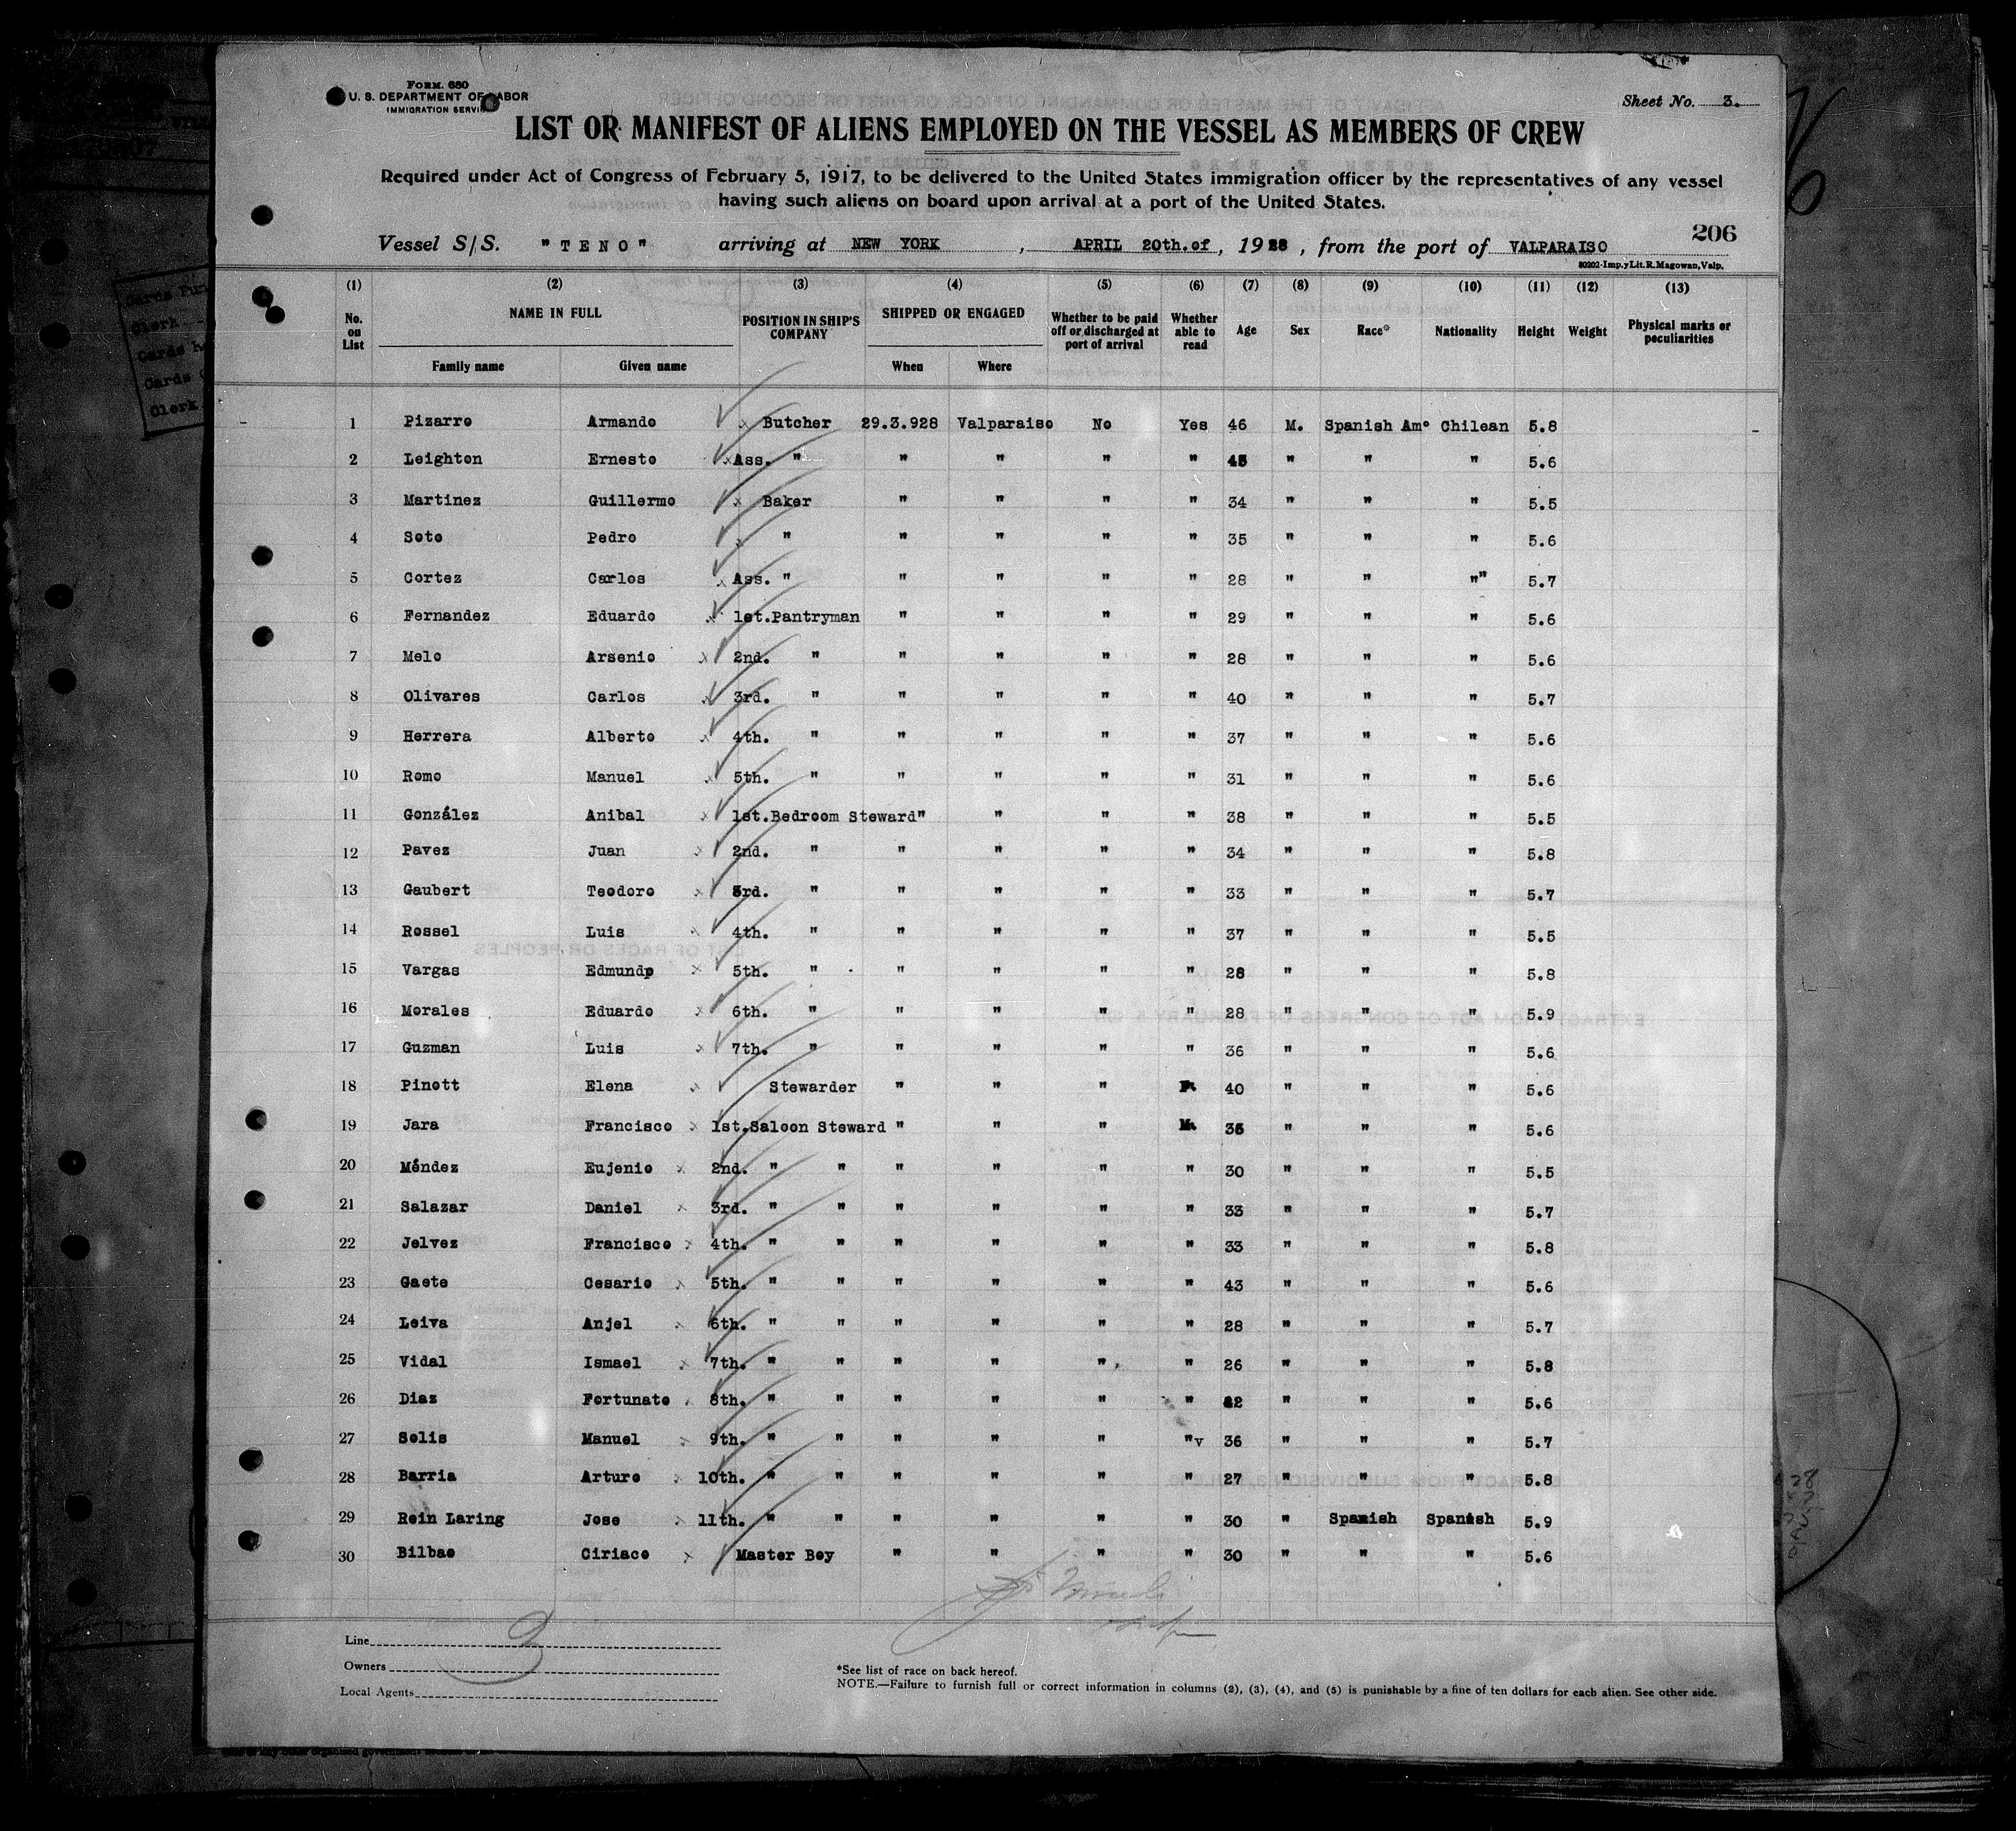 FORM. 680
U. S. DEPARTMENT OF LABOR
IMMIGRATION SERVICE
Sheet No. 3.
LIST OR MANIFEST OF ALIENS EMPLOYED ON THE VESSEL AS MEMBERS OF CREW
Required under Act of Congress of February 5, 1917, to be delivered to the United States immigration officer by the representatives of any vessel
having such aliens on board upon arrival at a port of the United States.
206
Vessel S/S. "TENO" arriving at NEW YORK , APRIL 20th.of , 1928 , from the port of VALPARAISO
80202-Imp.yLit.R.Magowan,Valp.
(1) (2) (3) (4) (5) (6) (7) (8) (9) (10) (11) (12) (13)
No. on List NAME IN FULL POSITION IN SHIP'S COMPANY SHIPPED OR ENGAGED Whether to be paid off or discharged at port of arrival Whether able to read Age Sex Race* Nationality Height Weight Physical marks or peculiarities
Family name Given name When Where
1 Pizarro Armando x Butcher 29.3.928 Valparaiso No Yes 46 M. Spanish Amº Chilean 5.8
2 Leighton Ernesto x Ass. " " " " " 45 " " " 5.6
3 Martinez Guillermo x Baker " " " " 34 " " " 5.5
4 Soto Pedro x " " " " " 35 " " " 5.6
5 Cortez Carlos x Ass. " " " " " 28 " " "" 5.7
6 Fernandez Eduardo x 1st.Pantryman " " " " 29 " " " 5.6
7 Melo Arsenio x 2nd. " " " " " 28 " " " 5.6
8 Olivares Carlos x 3rd. " " " " " 40 " " " 5.7
9 Herrera Alberto x 4th. " " " " " 37 " " " 5.6
10 Romo Manuel x 5th. " " " " " 31 " " " 5.6
11 González Anibal x 1st.Bedroom Steward" " " " 38 " " " 5.5
12 Pavez Juan x 2nd. " " " " " 34 " " " 5.8
13 Gaubert Teodoro x 3rd. " " " " " 33 " " " 5.7
14 Rossel Luis x 4th. " " " " " 37 " " " 5.5
15 Vargas Edmundo x 5th. " " " " " 28 " " " 5.8
16 Morales Eduardo x 6th. " " " " " 28 " " " 5.9
17 Guzman Luis x 7th. " " " " " 36 " " " 5.6
18 Pinott Elena x Stewarder " " " F. 40 " " " 5.6
19 Jara Francisco x 1st.Saloon Steward " " " M. 36 " " " 5.6
20 Méndez Eujenio x 2nd. " " " " " " 30 " " " 5.5
21 Salazar Daniel x 3rd. " " " " " " 33 " " " 5.7
22 Jelvez Francisco x 4th. " " " " " " 33 " " " 5.8
23 Gaete Cesario x 5th. " " " " " " 43 " " " 5.6
24 Leiva Anjel x 6th. " " " " " " 28 " " " 5.7
25 Vidal Ismael x 7th. " " " " " " 26 " " " 5.8
26 Diaz Fortunato x 8th. " " " " " " " " " 5.6
27 Solis Manuel x 9th. " " " " " "v 36 " " " 5.7
28 Barria Arturo x 10th. " " " " " " 27 " " " 5.8
29 Rein Laring Jose x 11th. " " " " " " 30 " Spanish Spanish 5.9
30 Bilbao Ciriaco x Master Boy " " " " 30 " " " 5.6
3
Line
Owners
Local Agents
*See list of race on back hereof.
NOTE.—Failure to furnish full or correct information in columns (2), (3), (4), and (5) is punishable by a fine of ten dollars for each alien. See other side.